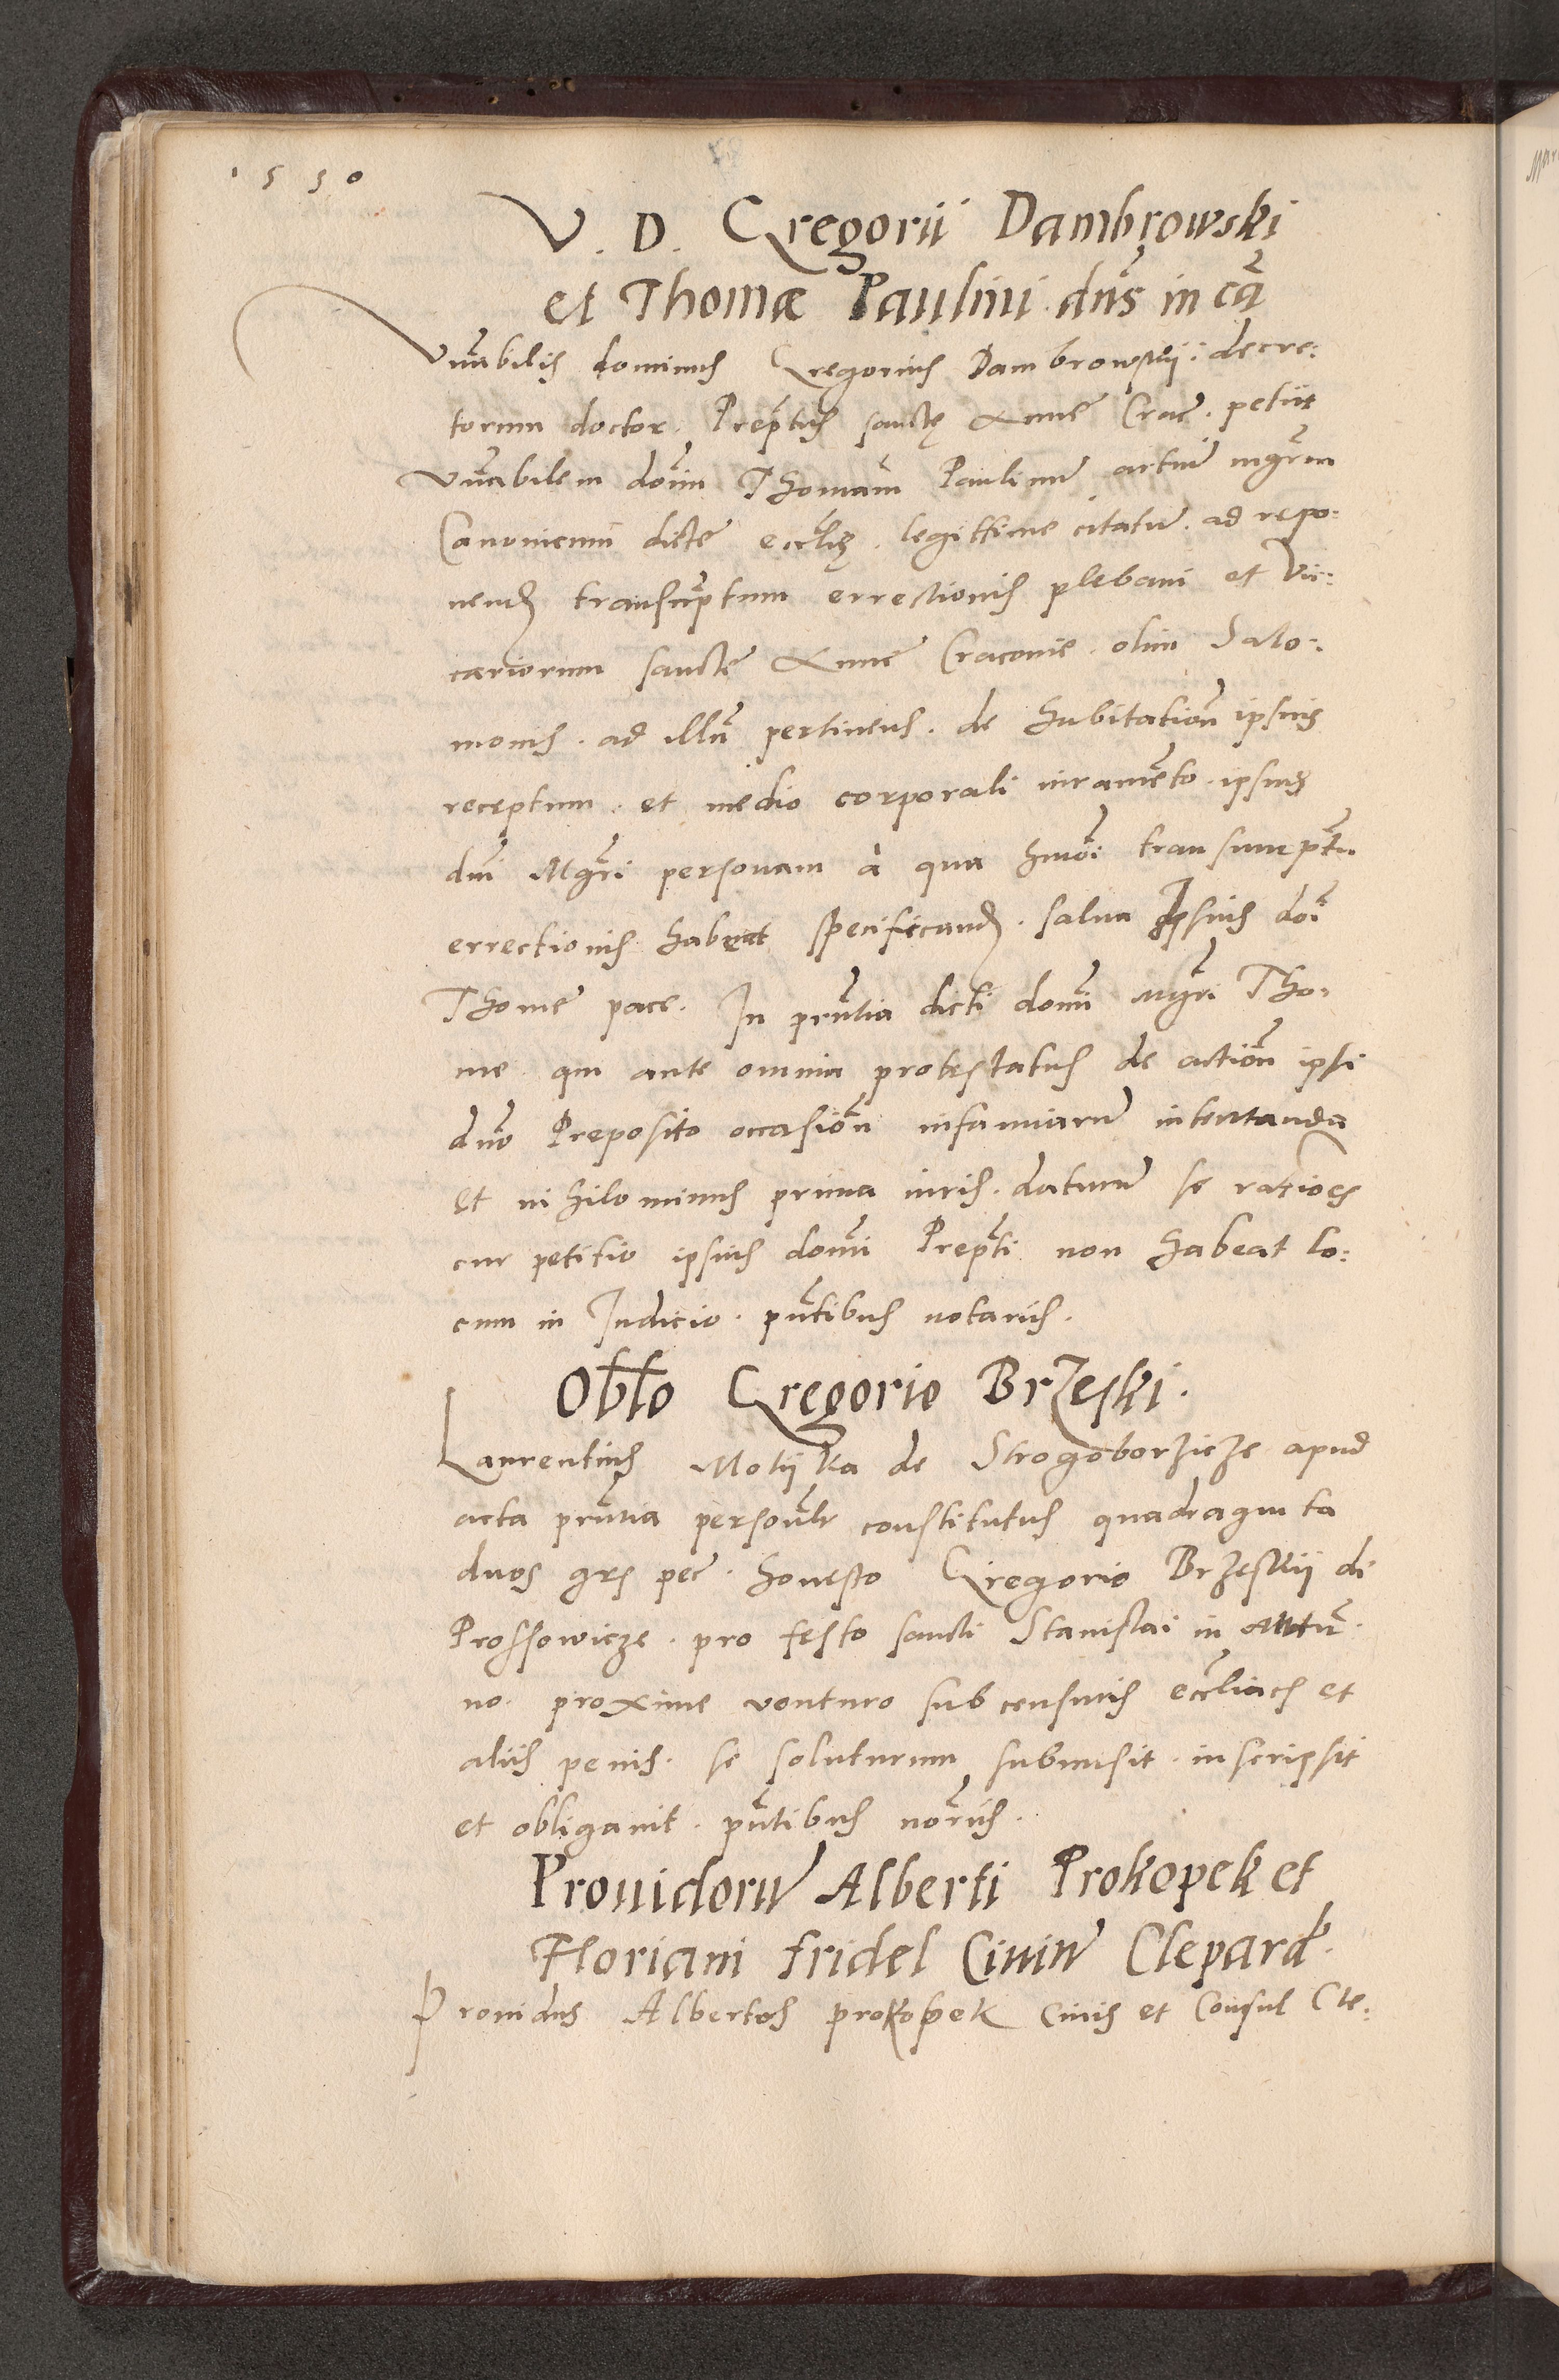 1550
V. D. Gregorii Dambrowski
et Thomæ Paulini dn̄s in cā
Vn̄abilis dominus Gregorius Dambrowskij decre:
torum doctor. Prep̄tus sanctę Anne Crac̄. petiit
Vn̄abilem don̄m Thomam̄ Paulinum̄ artium̄ mgr̄m
Canonicum dicte eccl̄ię. legittime citatum̄. ad repo:
nend. transsūptum errectionis plebani et Vi:
cariorum sancte Anne Cracovie. olim Salo:
monis. ad illū pertinens. de habitation̄ ipsius
receptum. et medio corporali iuramēto. ipsius
dn̄i Mgr̄i personam à qua hmōi transumptū
errectionis habuit specificand. salua Ipsius doī
Thome pace. In pn̄tia dicti domī Mgr̄i Tho:
me qui ante omnia protestatus de action̄ ipsi
dn̄o Preposito occasion̄ infamiarum̄ intentanda
et nihilominus prima iuris. daturum̄ se rationes
cur petitio ipsius domī Prep̄ti non habeat lo:
cum in Iudicio. pn̄tibus notariis.
Obl̄o Gregorio Brzeski.
Laurentius Motijka de Strogoborzicze apud
acta pn̄tia personal̄r constitutus quadraginta
duos grs pec̄. honesto Gregorio Brzeskij di
Prossowicze. pro festo sancti Stanislai in Autū:
no. proxime venturo sub censuris eccl̄iacis et
aliis penis. se soluturum submisit. inscripsit
et obligauit. pn̄tibus nor̄iis.
Prouidorum̄ Alberti Prokopek et
Floriani Fridel Ciuium̄ Clepard.
Prouidus Albertus prokopek Ciuis et Consul Cle: